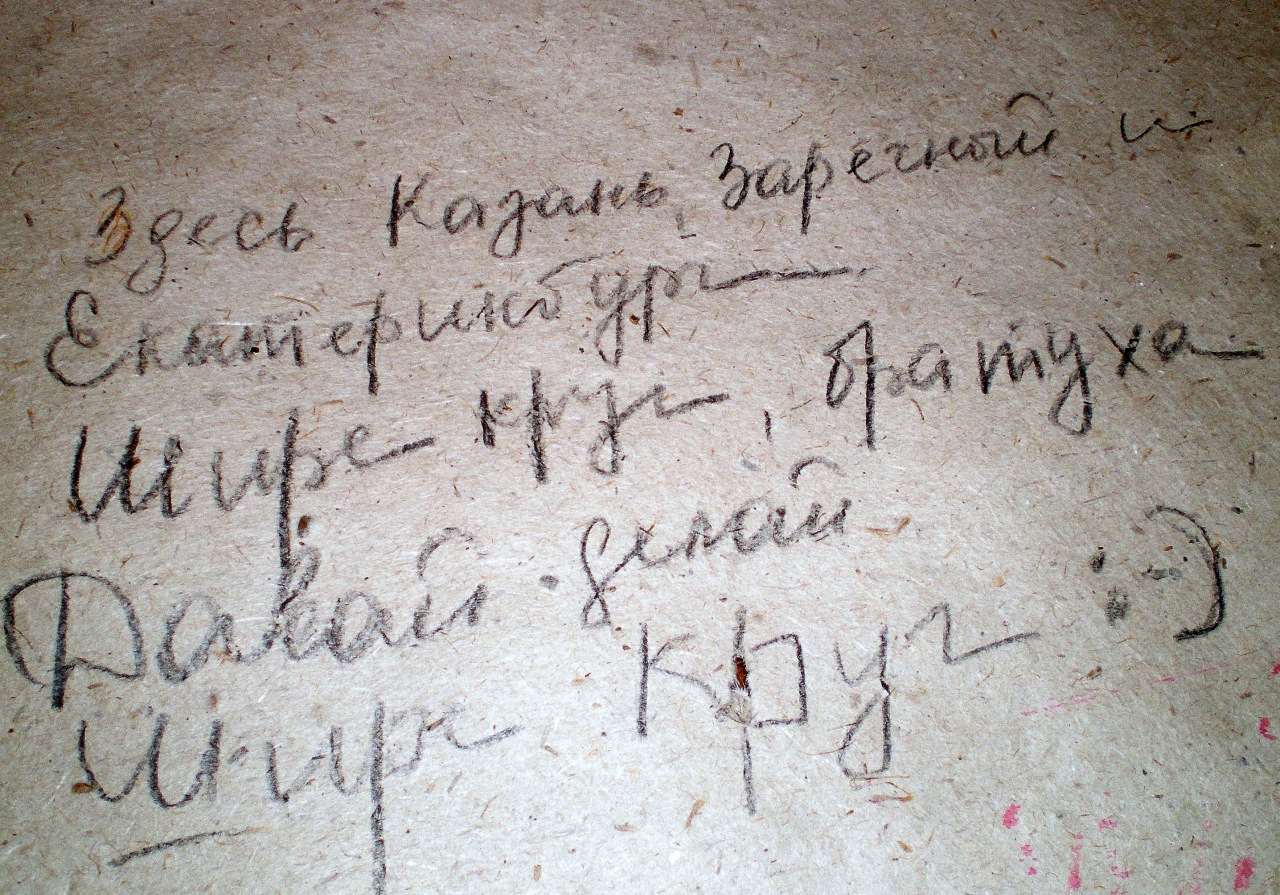 Здесь Казань, Заречный и
Екатеринбург
Шире круг, братуха
Давай делай
Шире круг :-)